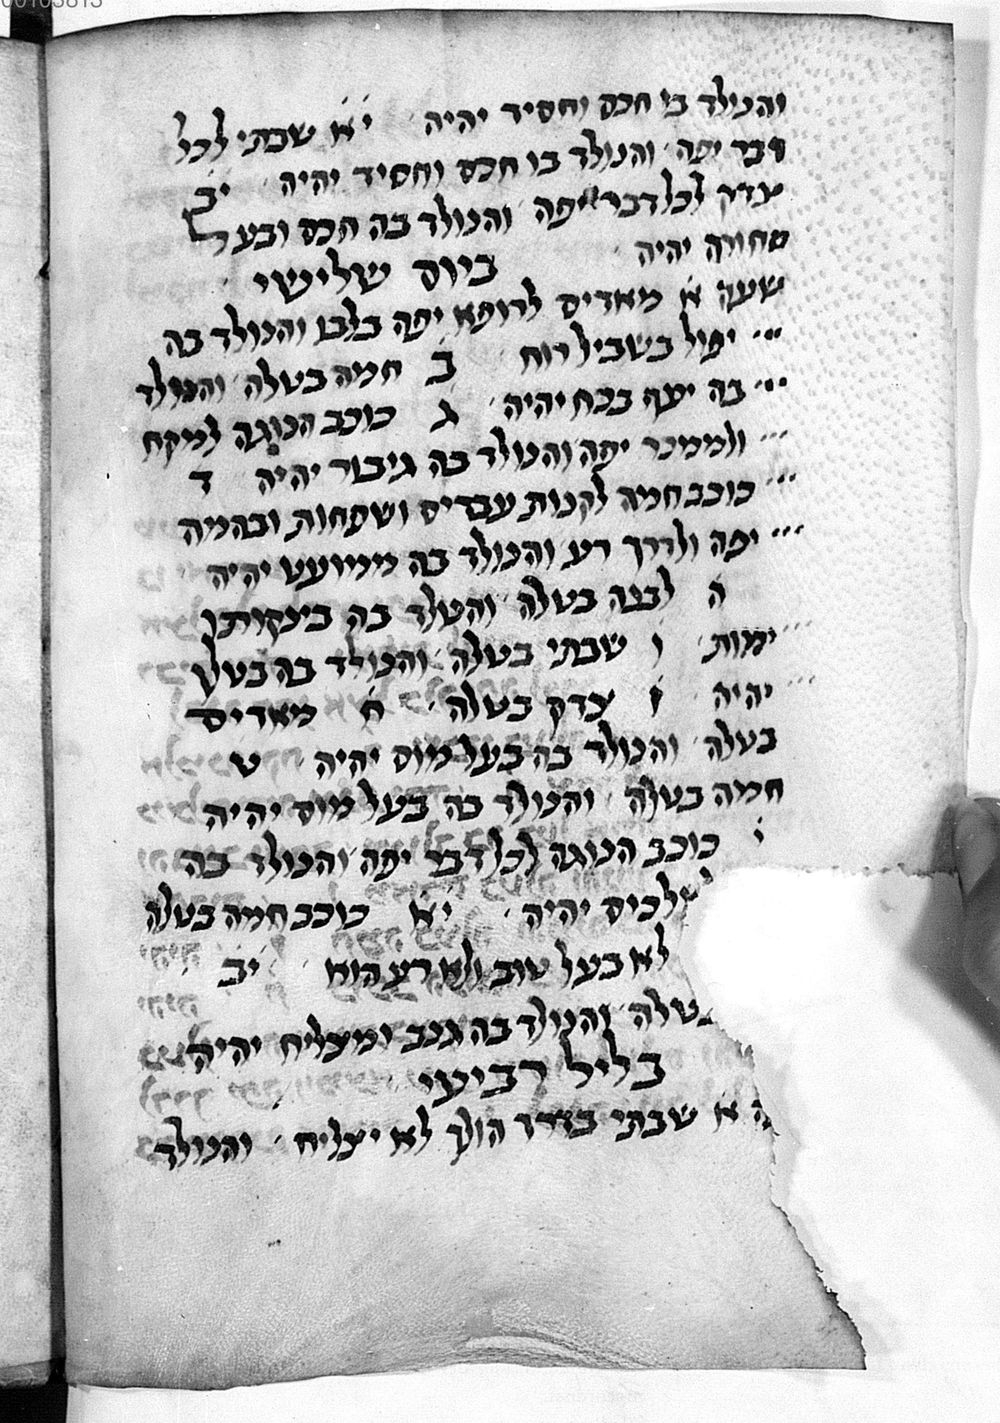 והנולד בו חכם וחסיד יהיה יא שבתי לכל
דבר יפה והנולד בו חכם וחסיד יהיה יב
צדק לכל דבר יפה והנולד בה חכם ובעל
סחורה יהיה
ביום שלישי
שעה א מאדים לרופא יפה והנולד בה
יפול בשביל רוח ב חמה בטלה והנולד
בה יעף בכח יהיה ג כוכב הנוגה למקח
ולממכר יפה והנולד בה גיבור יהיה ד
כוכב חמה לקנות עבדים ושפחות ובהמה
יפה ולדרך רע והנולד בה ממיועט יהיה
ה לבנה בטלה והנולד בה בינקותו
ימות ו שבתי בטלה והנולד בה בטלן
יהיה ז צדק בטלה ח מאדים
בטלה והנולד בה בעל מום יהיה ט
חמה בטלה והנולד בה בעל מום יהיה
י כוכב הנוגה לכל דבר יפה והנולד בה
לכיס יהיה יא כוכב חמה בטלה
לא בעל טוב ולא רע הוא יב
בטלה והנולד בה גנב ומצליח יהיה
בליל רביעי
א שבתי בדרך הולך לא יצליח והנולד